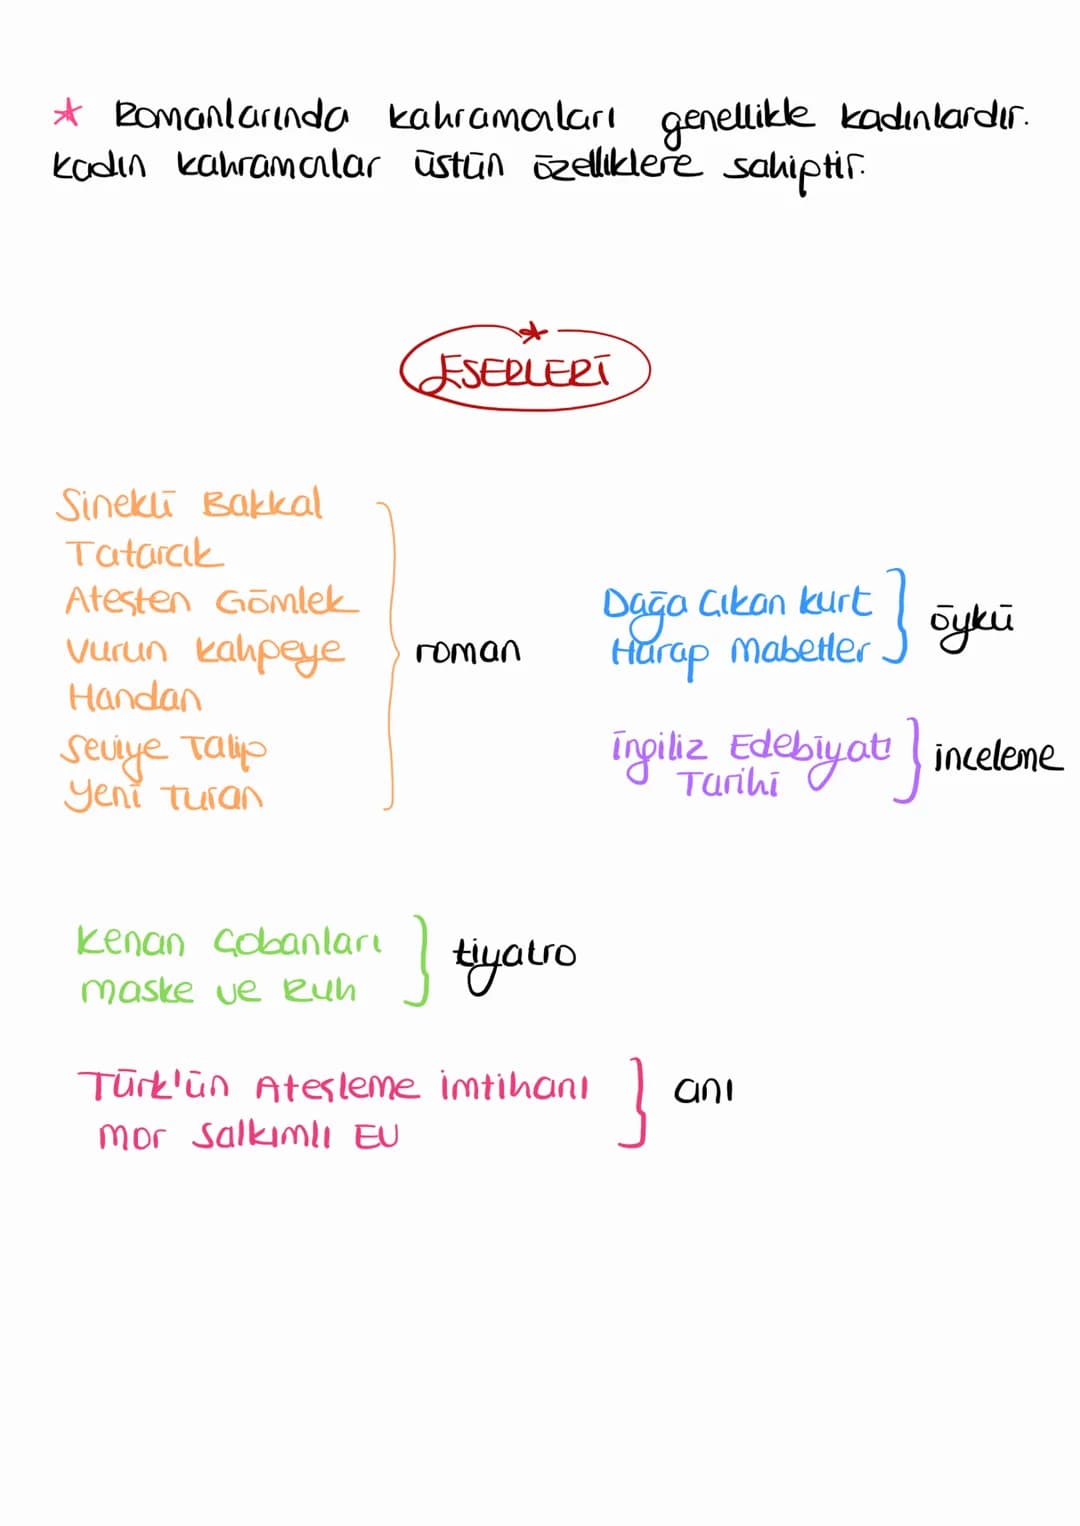 * Romanlarında kahramanları genellikle kadınlardır.
Kadın kahramanlar üstün özelliklere sahiptir.
ESERLERİ
Sinekli Bakkal
Tatarcık
Ateşten Gömlek
Vurun Kahpeye
Handan
Seviye Talip
Yeni Turan
roman
Dağa Çıkan Kurt
Harap Mabetler
öykü
İngiliz Edebiyatı
Tarihi
inceleme
Kenan Çobanları
Maske ve Ruh
tiyatro
Türk'ün Ateşleme İmtihanı
Mor Salkımlı Ev
anı